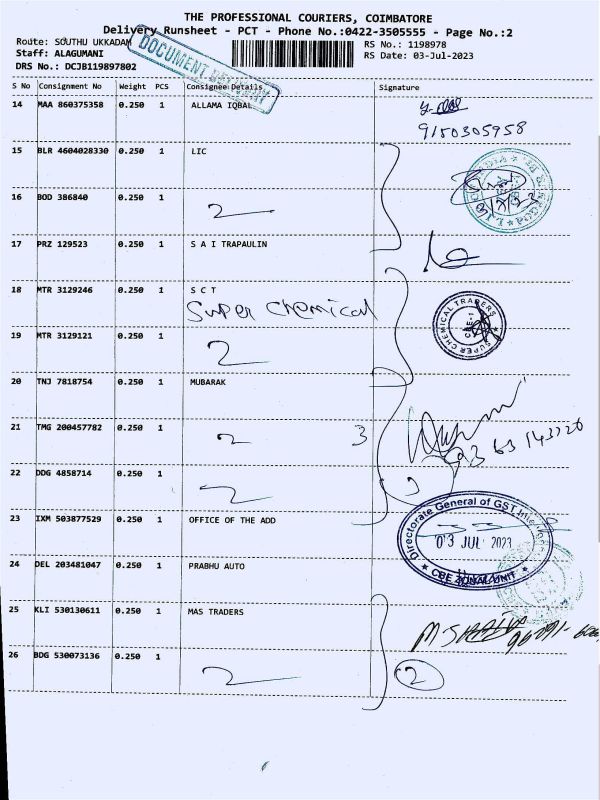 THE PROFESSIONAL COURIERS, COIMBATORE
Delivery Runsheet - PCT - Phone No.:0422-3505555 - Page No.:2
Route: SOUTHU UKKADAM
RS No.: 1198978
Staff: ALAGUMANI
RS Date: 03-Jul-2023
DRS No.: DCJB119897802
DOCUMENT DELIVERY
S No Consignment No Weight PCS Consignee Details Signature
14 MAA 860375358 0.250 1 ALLAMA IQBAL
9150305958
15 BLR 4604028330 0.250 1 LIC
16 BOD 386840 0.250 1
2
17 PRZ 129523 0.250 1 S A I TRAPAULIN
18 MTR 3129246 0.250 1 S C T
Super Chemical
SUPER CHEMICAL TRADERS
CBE-1
19 MTR 3129121 0.250 1
2
20 TNJ 7818754 0.250 1 MUBARAK
21 TMG 200457782 0.250 1
2 3
22 DDG 4858714 0.250 1
2
23 IXM 503877529 0.250 1 OFFICE OF THE ADD
Directorate General of GST
03 JUL 2023
CBE ZONAL UNIT
24 DEL 203481047 0.250 1 PRABHU AUTO
25 KLI 530130611 0.250 1 MAS TRADERS
26 BDG 530073136 0.250 1
2 2